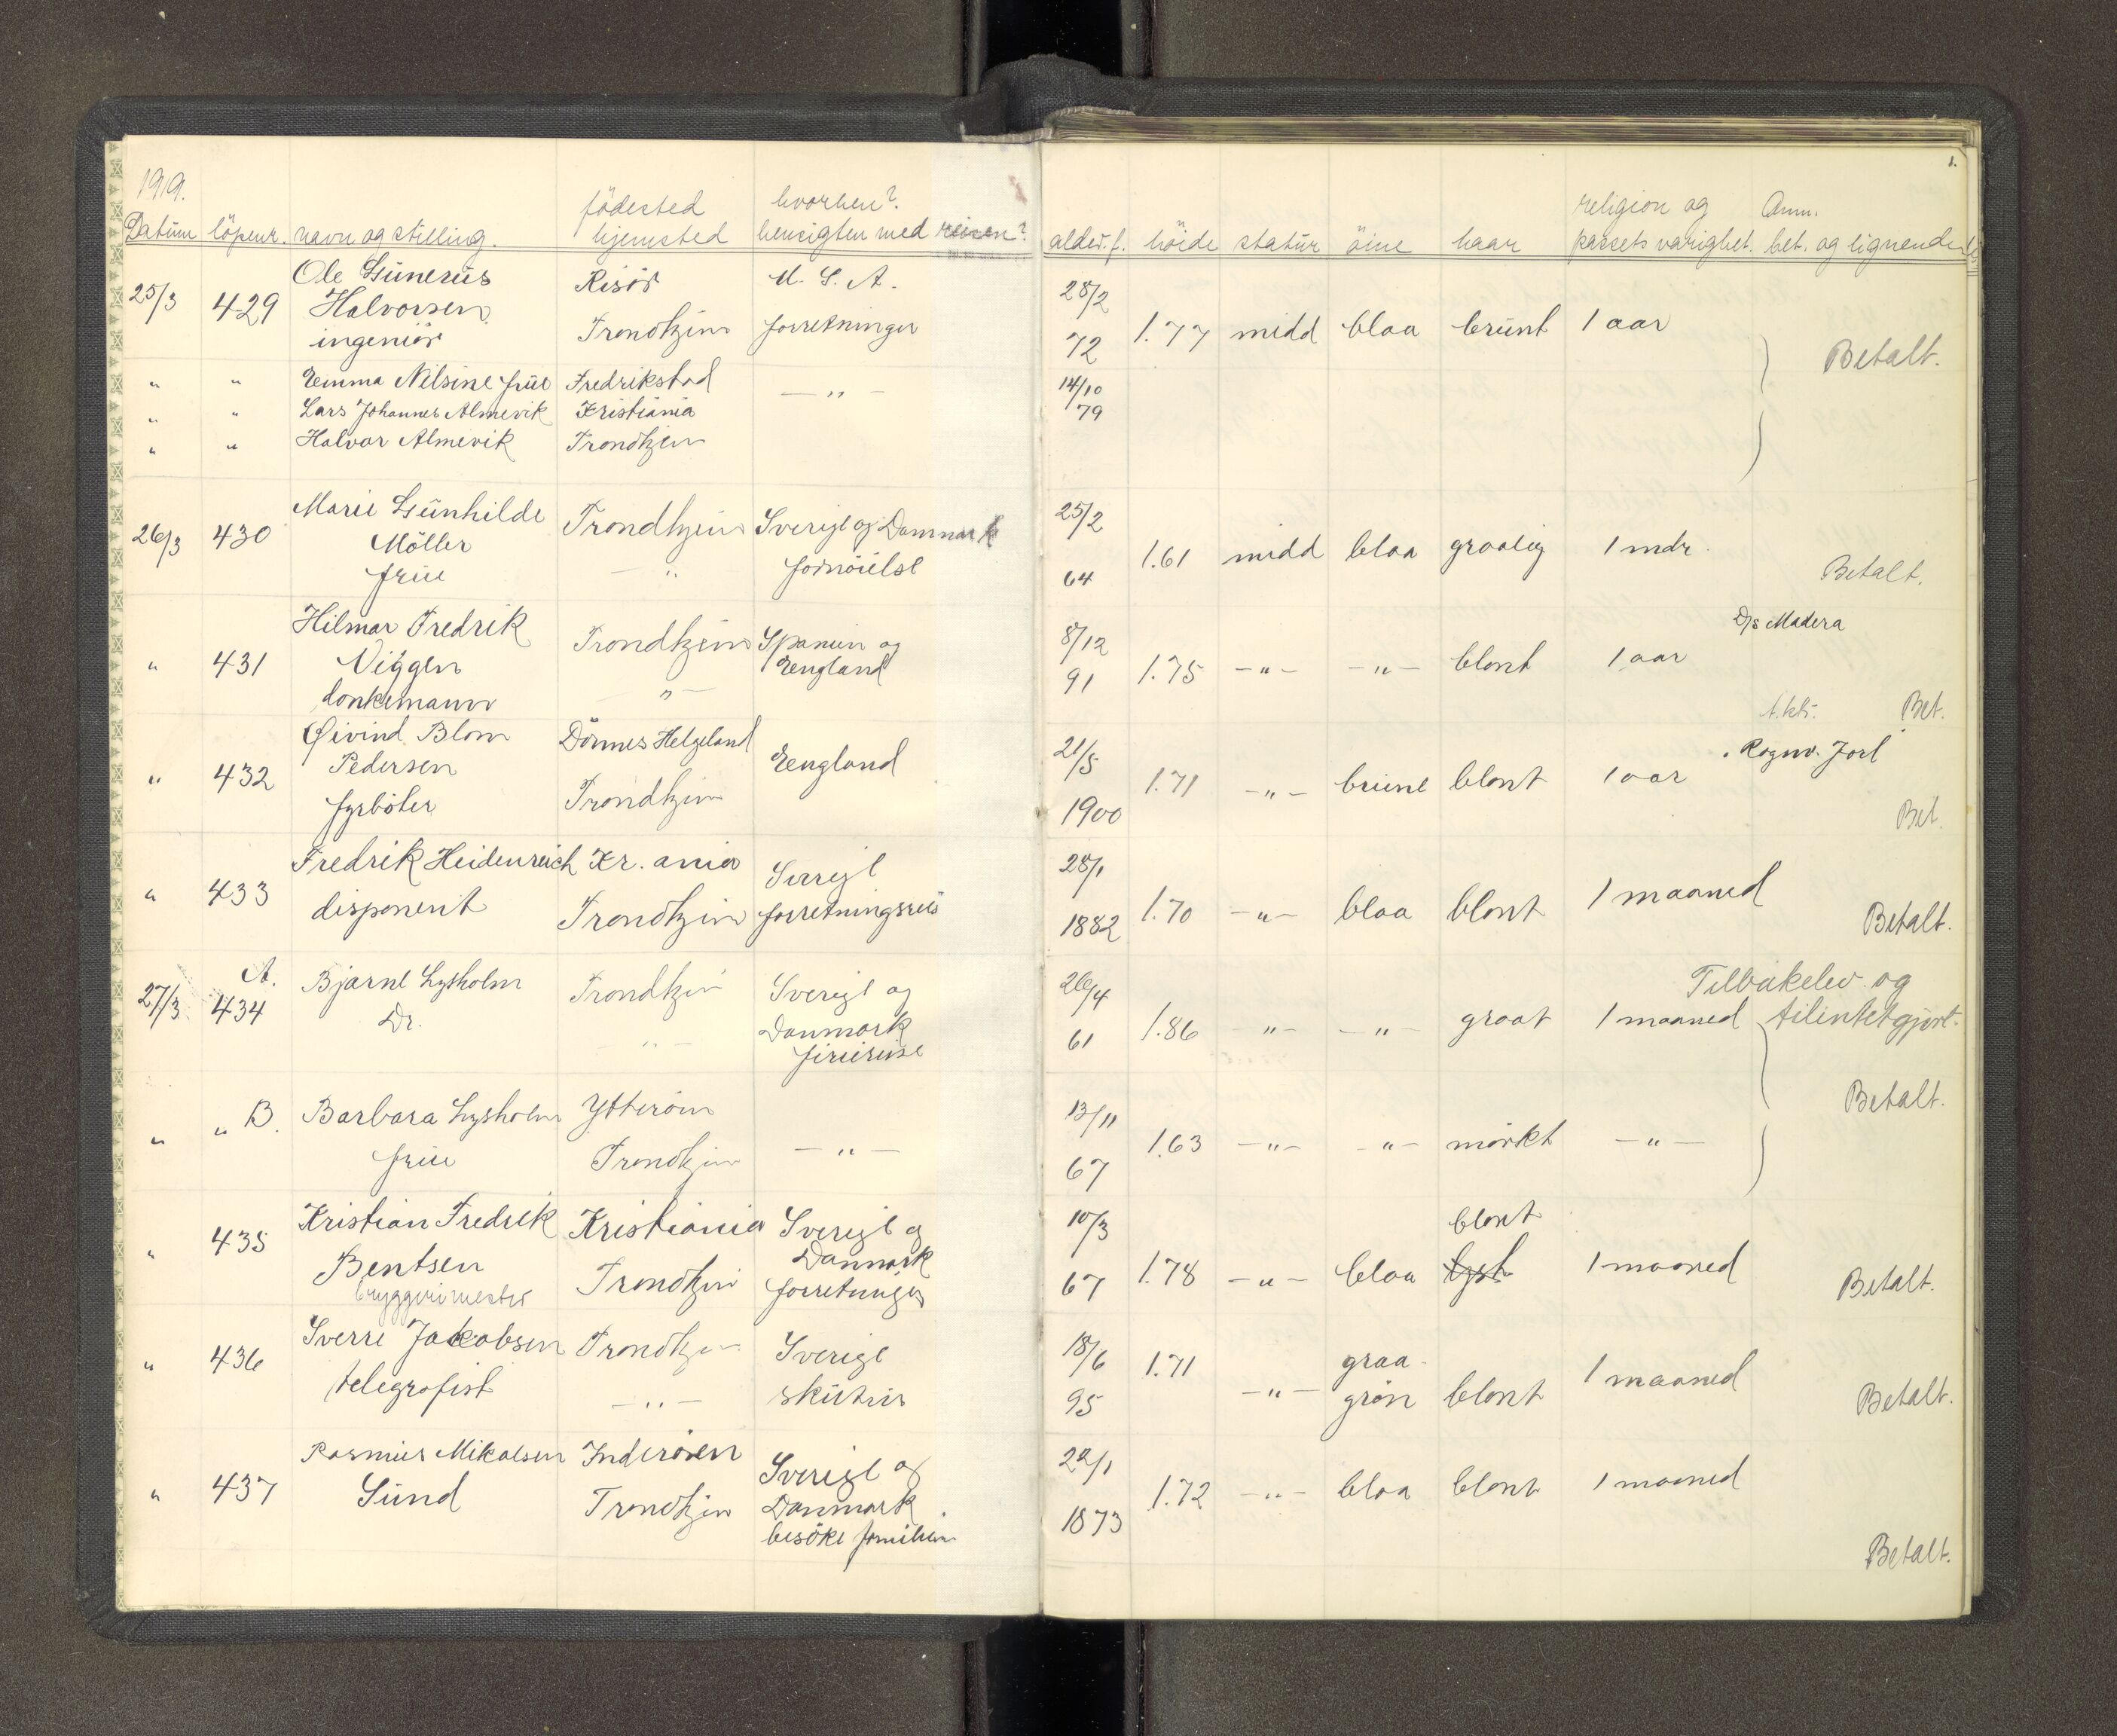 1919.
Datum löpenr. navn og stilling. födested hjemsted hvorhen? hensigten med reisen?
25/3 429 Ole Gunerius Risör U. S. A.
Halvorsen Trondhjem forretninger
ingeniör
" " Emma Nilsine frue Fredrikstad — " —
" " Lars Johannes Almevik Kristiania
" " Halvor Almevik Trondhjem
26/3 430 Marie Gunhilde Trondhjem Sverige og Danmark
Möller fornöielse
frue — " —
" 431 Hilmar Fredrik Trondhjem Spanien og
Viggen England
donkemann — " —
" 432 Øivind Blom Dönnes Helgeland England
Pedersen
fyrböter Trondhjem
" 433 Fredrik Heidenreich Kr.ania Sverige
disponent Trondhjem forretningsreis
27/3 A. 434 Bjarne Lysholm Trondhjem Sverige og
Dr. — " — Danmark
feriereise
" " B. Barbara Lysholm Ytteröen
frue Trondhjem — " —
" 435 Kristian Fredrik Kristiania Sverige og
Bentsen Trondhjem Danmark
bryggerimester forretninger
" 436 Sverre Jakobsen Trondhjem Sverige
telegrafist — " — skiture
" 437 Rasmus Mikalsen Inderöen Sverige og
Sund Trondhjem Danmark
besöke familien
1.
alder. f. höide statur öine haar religion og passets varighet. Anm. bet. og lignende
28/2 72 1.77 midd blaa brunt 1 aar Betalt.
14/10 79
25/2 64 1.61 midd blaa graalig 1 mdr. Betalt.
8/12 91 1.75 — " — — " — blont 1 aar D/s Madera Bet.
21/5 1900 1.71 — " — brune blont 1 aar Ragnv. Jarl Bet.
28/1 1882 1.70 — " — blaa blont 1 maaned Betalt.
26/4 61 1.86 " — — " — graat 1 maaned Tilbakelev. og tilintetgjort. Betalt.
13/11 67 1.63 — " — " — mörkt — " —
10/3 67 1.78 — " — blaa blont lyst 1 maaned Betalt.
18/6 95 1.71 — " — graa grön blont 1 maaned Betalt.
22/1 1873 1.72 — " — blaa blont 1 maaned Betalt.